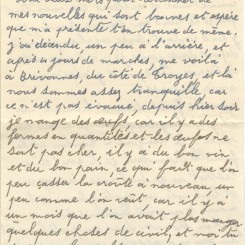 mes nouvelles qui sont bonnes et espère
que m'a présente t'en trouve de même,
j'ai décendu, un peu à l'arrière, et
après jours de marches, me voilà
à Brivonnes, du côté de Troyes, et là
nous sommes assez tranquille, car
ce n'est pas évacué, depuis hier soir
je mange des œufs, car il y a des
fermes en quantités et les œufs ne
sont pas cher, il y a du bon vin
et du bon pain, ce qui fait que l'on
peu casser la croûte à nouveau un
peu comme l'on veut, car il y a
un mois que l'on avait plus mangé
quelques choses de civil, et moi tu